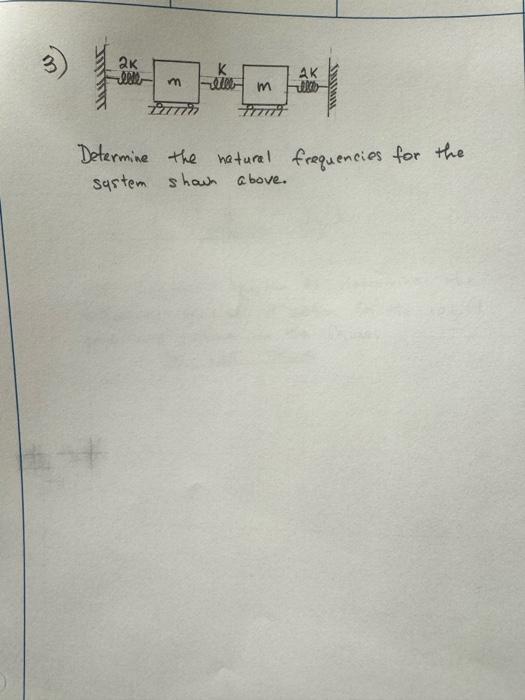 3)
2K K 2K
m m
Determine the natural frequencies for the
system shown above.